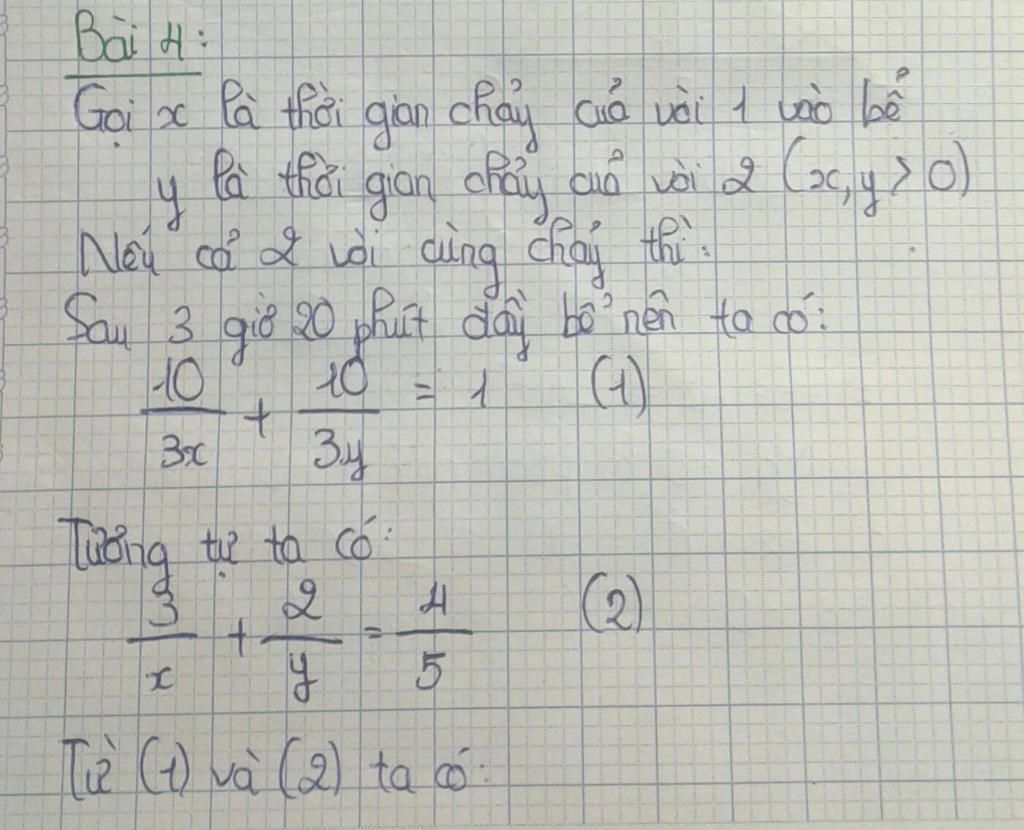 Bài 4:
Gọi x là thời gian chảy của vòi 1 vào bể
y là thời gian chảy của vòi 2 (x, y > 0)
Nếu cả 2 vòi cùng chảy thì:
Sau 3 giờ 20 phút đầy bể nên ta có:
10/3x + 10/3y = 1 (1)
Tương tự ta có:
3/x + 2/y = 4/5 (2)
Từ (1) và (2) ta có: